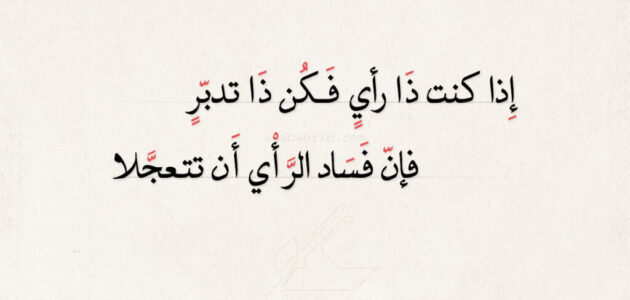 إِذا كنت ذَا رأيٍ فَكُن ذَا تدبّرٍ
فإنّ فَسَاد الرَّأْي أَن تتعجَّلا